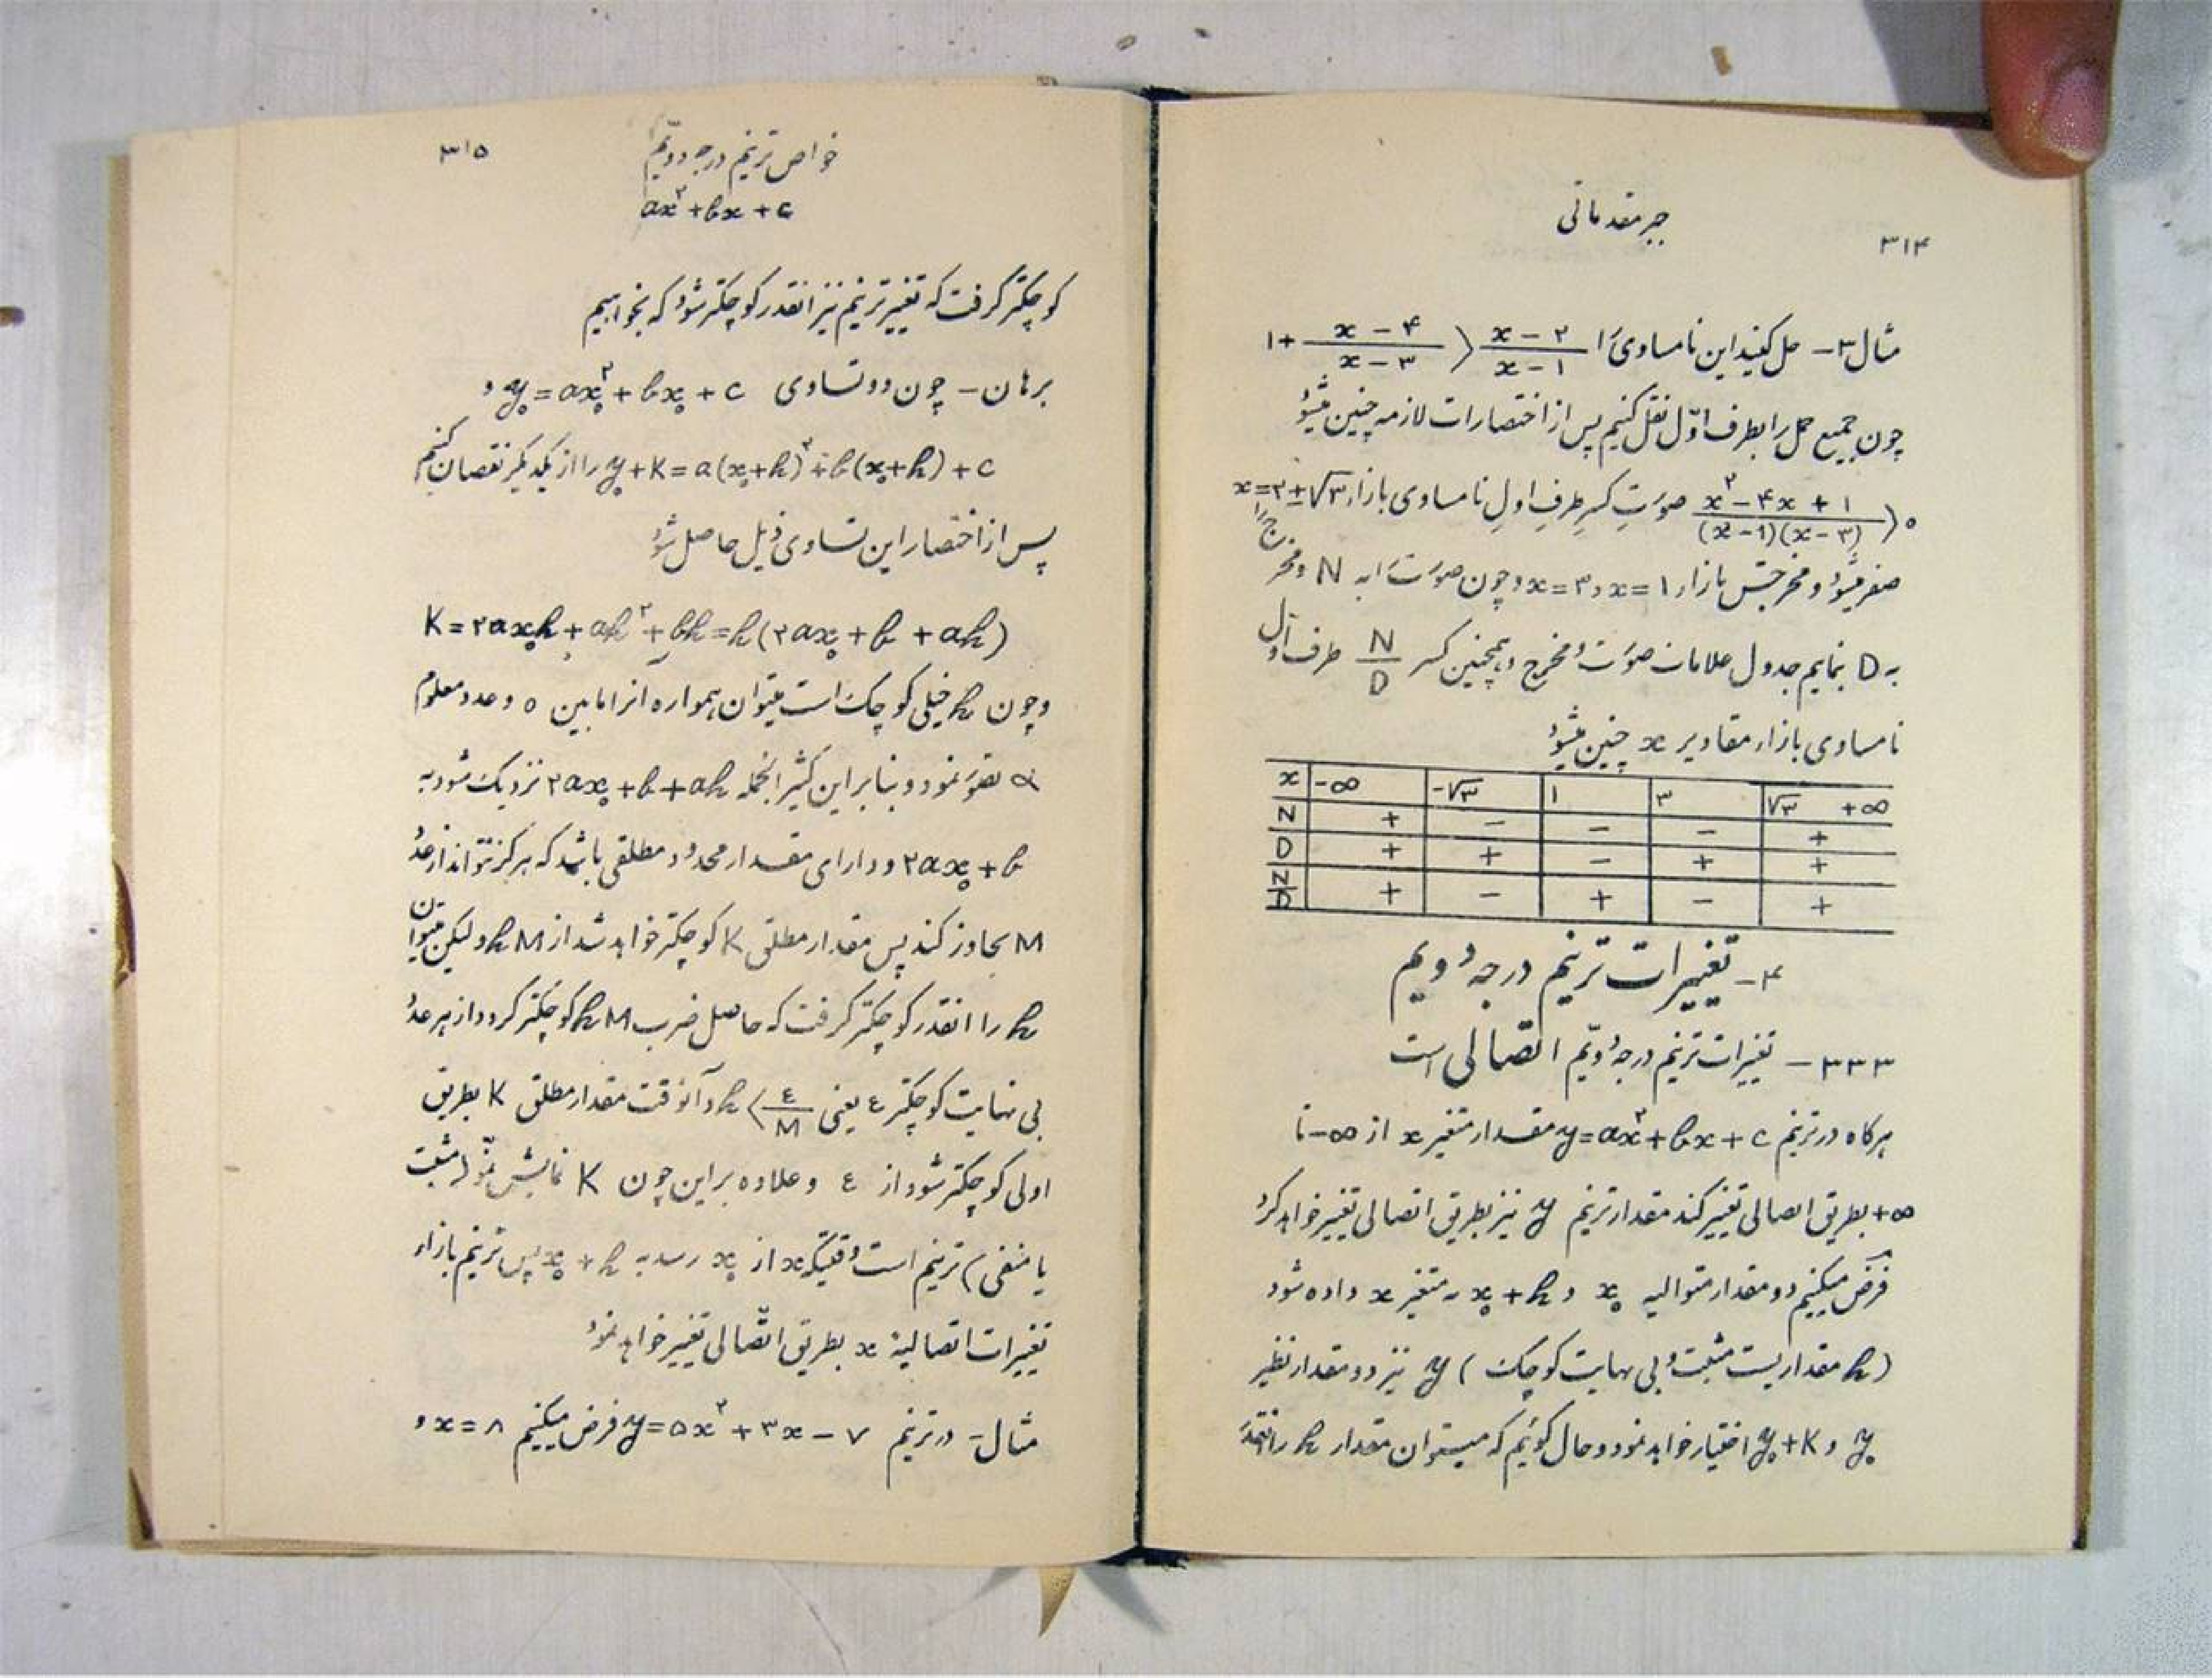 جبر مقدماتی
۳۱۴
مثال ۳- حل کنید این نامساوی را (x-۲)/(x-۱) > (x-۴)/(x-۳) +۱
چون جمیع جمل را بطرف اوّل نقل کنیم پس از اختصارات لازمه چنین میشود
(x^۲-۴x+۱)/((x-۱)(x-۳)) < ۰ صورتِ کسرِ طرفِ اولِ نامساوی بازاء x=۲±√۳
صفر میشود و مخرجش بازاء x=۱ و x=۳ و چون صورت را به N و مخرج را
به D بنمایم جدول علامات صورت و مخرج و همچنین کسر N/D طرف اول
نامساوی بازاء مقادیر x چنین میشود
x -∞ -√۳ ۱ ۳ √۳ +∞
N + - - - +
D + + - + +
N/D + - + - +
۴- تغییرات ترینم درجه دویم
۳۳۳- تغییرات ترینم درجه دویّم اتصالی است
هرگاه در ترینم y=ax^۲+bx+c مقدار متغیر x از -∞ تا
+∞ بطریق اتصالی تغییر کند مقدار ترینم y نیز بطریق اتصالی تغییر خواهد کرد
فرض میکنیم دو مقدار متوالیه x₀ و x₀+h به متغیر x داده شود
(h مقداریست مثبت و بی نهایت کوچک) y نیز دو مقدار نظیر
y₀ و y₀+K اختیار خواهد نمود و حال گوئیم که میتوان مقدار h را آنقدر
خواص ترینم درجه دویّم
۳۱۵
ax^۲+bx+c
کوچکتر گرفت که تغییر ترینم نیز انقدر کوچکتر شود که بخواهیم
برهان- چون دو تساوی y₀=ax₀^۲+bx₀+c و
y₀+K=a(x₀+h)^۲+b(x₀+h)+c را از یکدیگر نقصان کنیم
پس از اختصار این تساوی ذیل حاصل شود
K=۲ax₀h+ah^۲+bh=h(۲ax₀+b+ah)
و چون h خیلی کوچک است میتوان همواره آنرا مابین ۰ و عدد معلوم
α تصور نمود و بنابراین کثیر الجمله ۲ax₀+b+ah نزدیک شود به
۲ax₀+b و دارای مقدار محدود مطلقی باشد که هرگز نتواند از عدد
M تجاوز کند پس مقدار مطلق K کوچکتر خواهد شد از hM و لیکن میتوان
h را انقدر کوچکتر گرفت که حاصل ضرب hM کوچکتر گردد از هر عدد
بی نهایت کوچکتر ε یعنی h < ε/M و آنوقت مقدار مطلق K بطریق
اولی کوچکتر شود از ε و علاوه بر این چون K نمایش نموّ (مثبت
یا منفی) ترینم است وقتیکه x از x₀ رسد به x₀+h پس ترینم بازاء
تغییرات اتصالیه x بطریق اتّصالی تغییر خواهد نمود
مثال- در ترینم y=۵x^۲+۳x-۷ فرض میکنیم x=۸ و